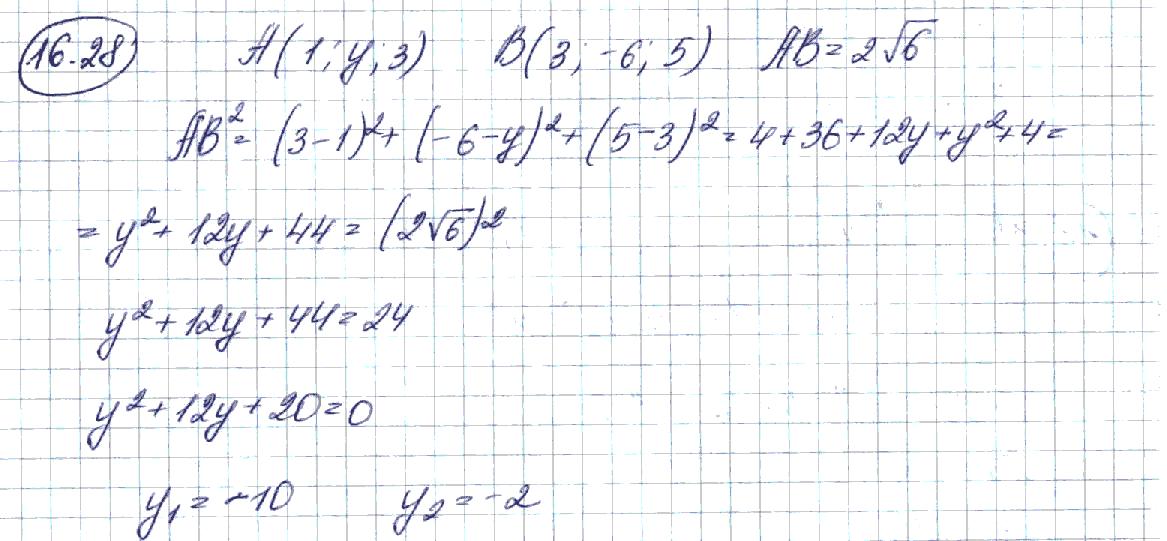 16.28 A(1; y; 3) B(3; -6; 5) AB = 2√6
AB² = (3-1)² + (-6-y)² + (5-3)² = 4 + 36 + 12y + y² + 4 =
= y² + 12y + 44 = (2√6)²
y² + 12y + 44 = 24
y² + 12y + 20 = 0
y₁ = -10 y₂ = -2